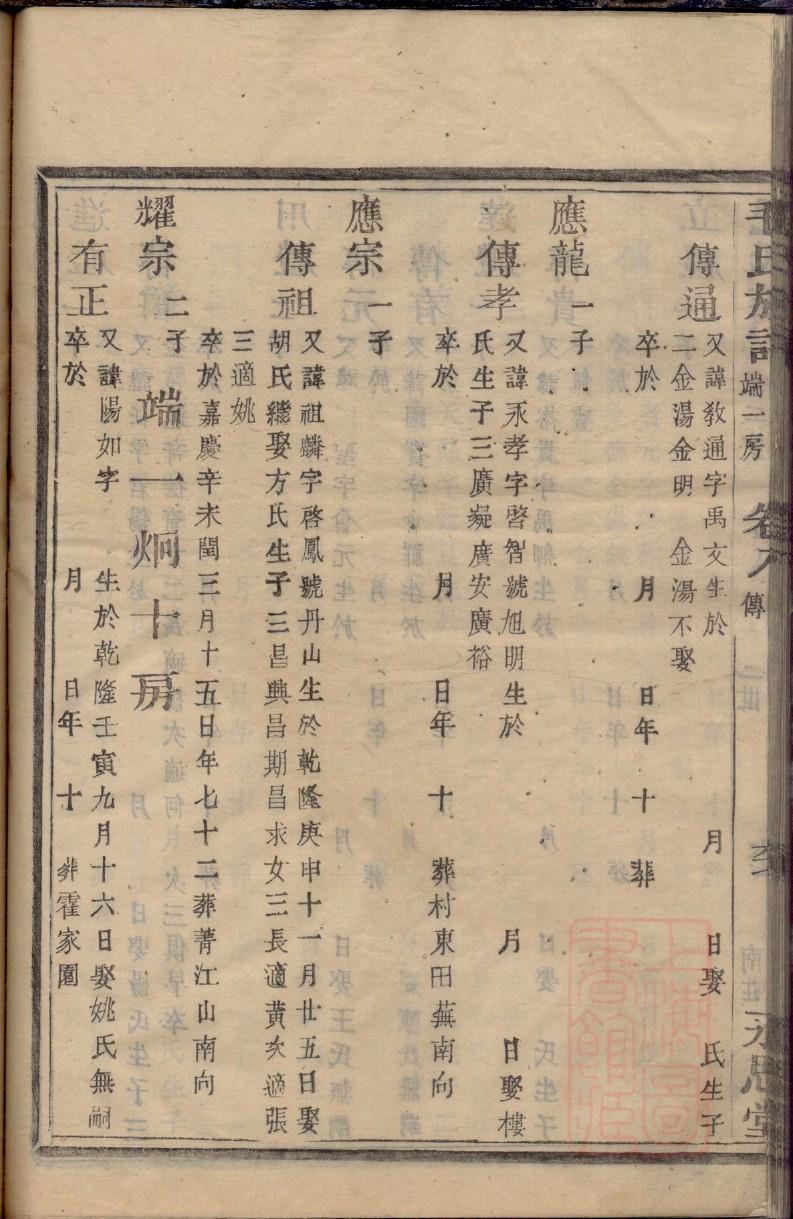 毛氏族譜 端一房 卷八 傳 永思堂
傳通 又諱教通字禹文生於 月 日娶 氏生子
二金湯金明 金湯不娶
卒於 月 日年 十 葬
應龍 一子
傳孝 又諱永孝字啓智號旭明生於 月 日娶樓
氏生子三廣凝廣安廣裕
卒於 月 日年 十 葬村東田蕪南向
應宗 一子
傳祖 又諱祖麟字啓鳳號丹山生於乾隆庚申十一月廿五日娶
胡氏繼娶方氏生子三昌興昌期昌求女三長適黃次適張
三適姚
卒於嘉慶辛未閏三月十五日年七十二葬菁江山南向
端一炯十房
耀宗 二子
有正 又諱陽如字 生於乾隆壬寅九月十六日娶姚氏無嗣
卒於 月 日年 十 葬霍家園